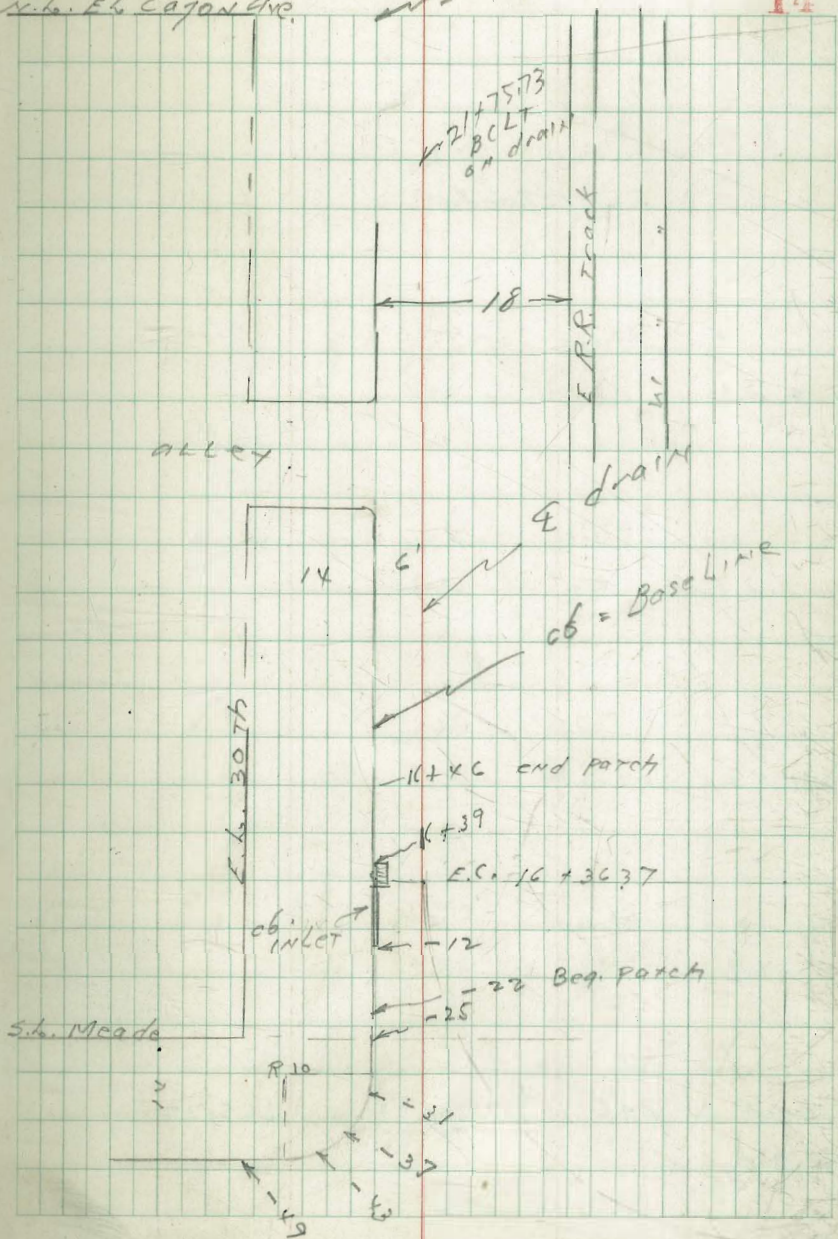 N.L. EL Cajon Ave.
14
21+75.73
BCLT
on drain
18
E R.R. Track
W " "
ALLEY
℄ drain
14
6'
cb = Base Line
E.L. 30Th
16+46 end patch
16+39
E.C. 16+36 37
cb.
INLET
-12
-22 Beg. patch
-25
S.L. Meade
R 10
-31
-37
-43
-49